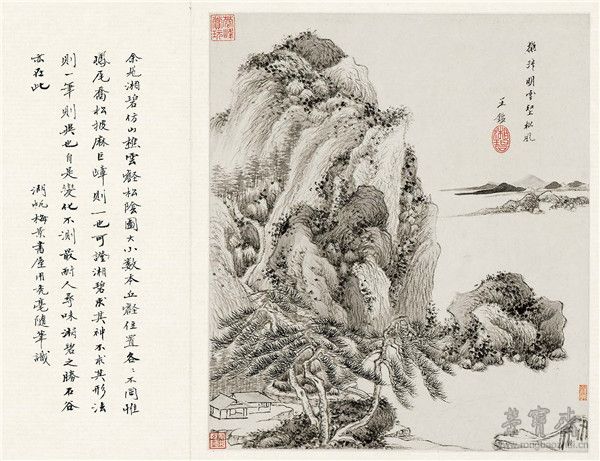 擬叔明雲壑松風
王鑑
余見湘碧仿山樵雲壑松陰圖大小數本丘壑位置各々不同惟
鳳尾喬松披麻巨嶂則一也可證湘碧求其神不求其形法
則一筆則異也自是變化不測最耐人尋味湘碧之勝石谷
亦在此
湖帆梅景書屋用禿毫隨筆識
榮寶齋
www.rongbaozhai.cn